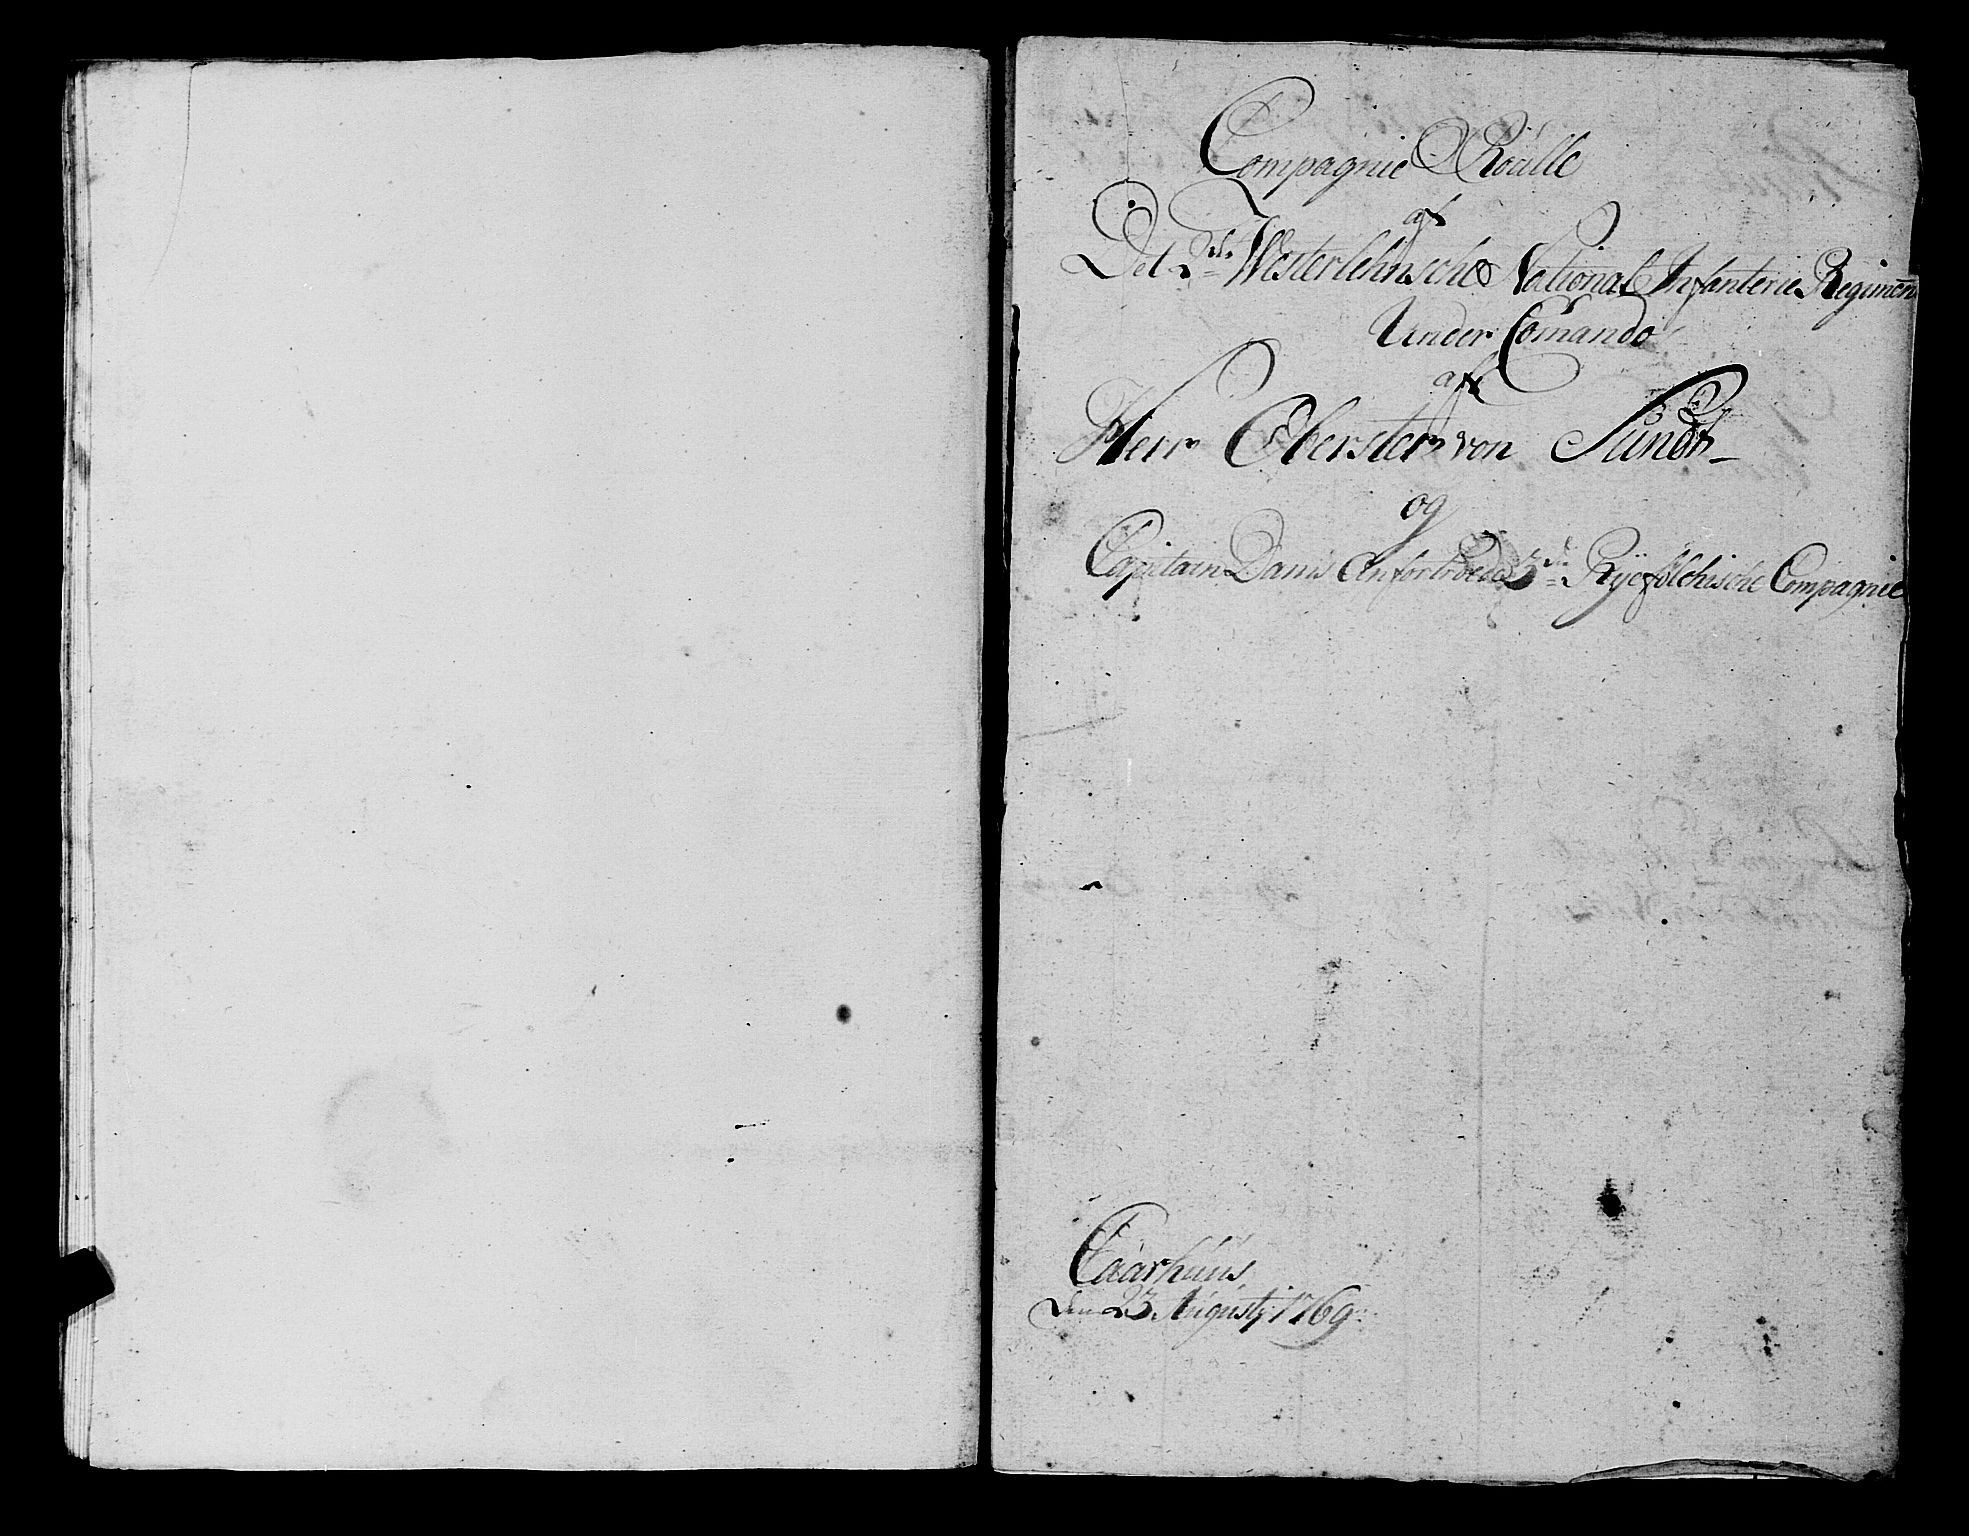 Compagnie Roulle
af
Det 2de Westerlehnsche National Infanterie Regiment
Under Comando
af
Herr Oberster von Sundt
og
Capitain Dams Anfortroede 3de Ryefölchische Compagnie
Aarhuus
den 23 Augustj 1769